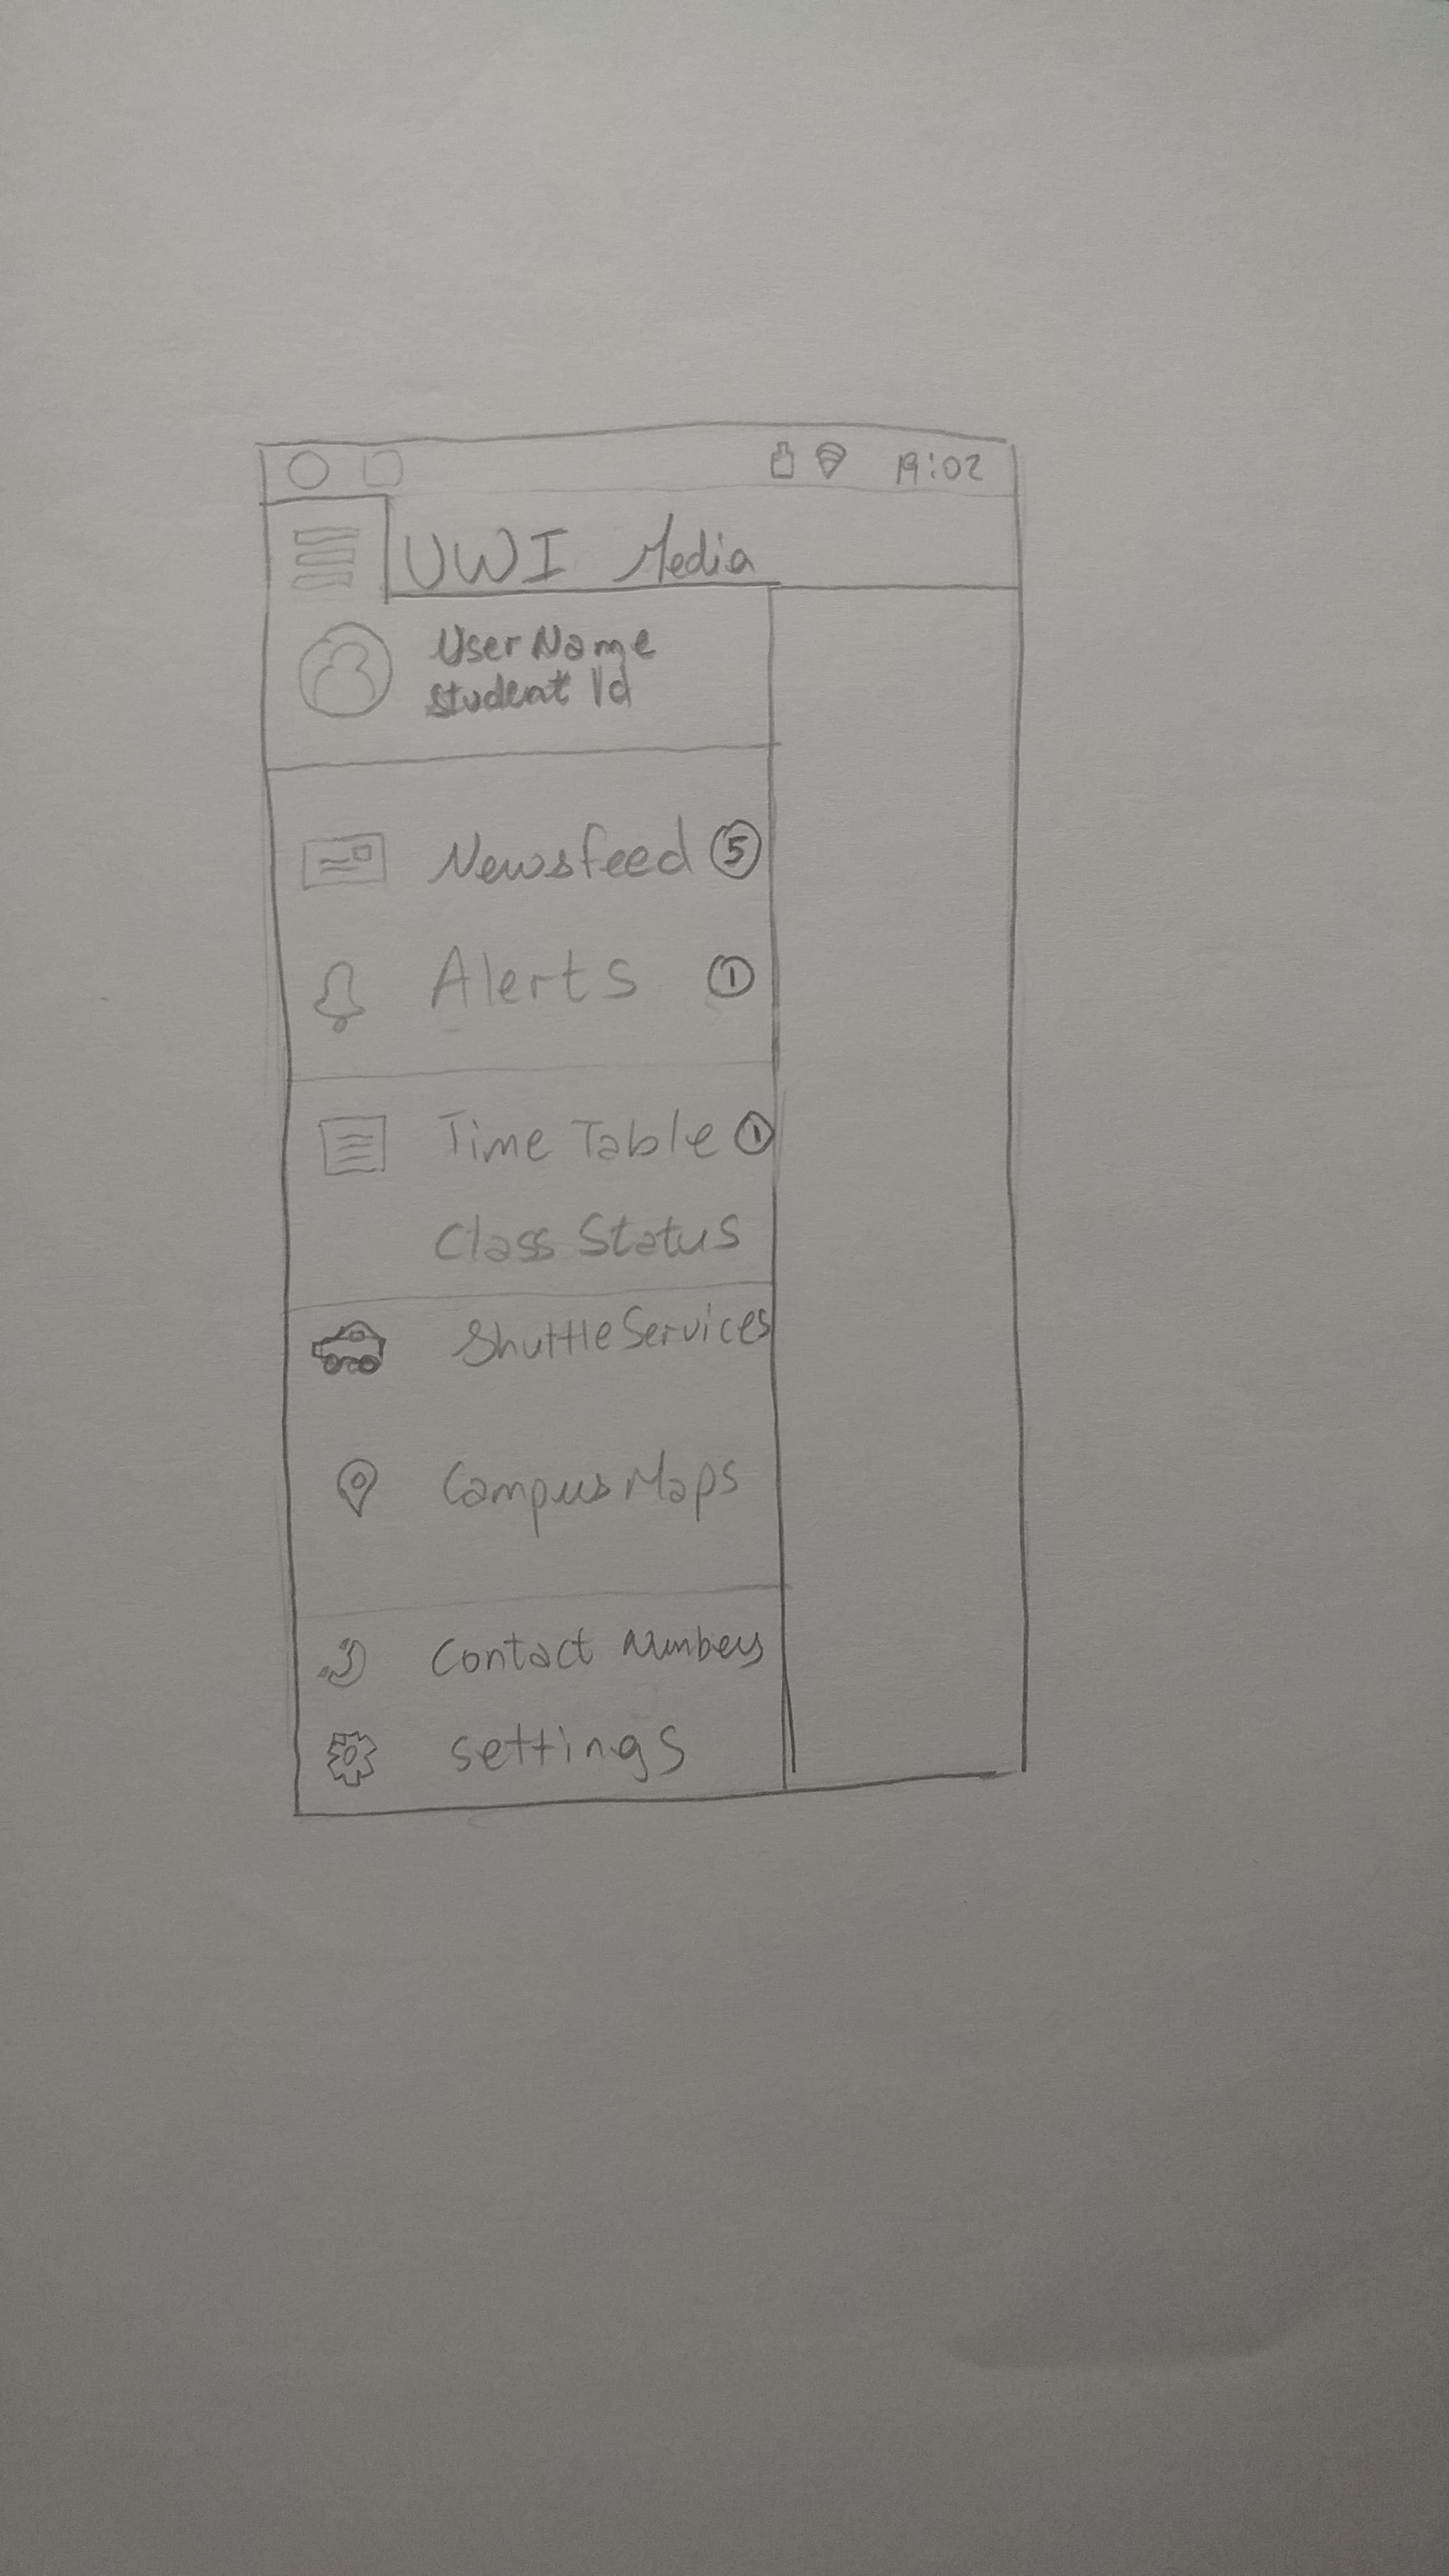 19:02
UWI Media
User Name
Student Id
Newsfeed 5
Alerts 1
Time Table 1
Class Status
Shuttle Services
Campus Maps
Contact numbers
settings